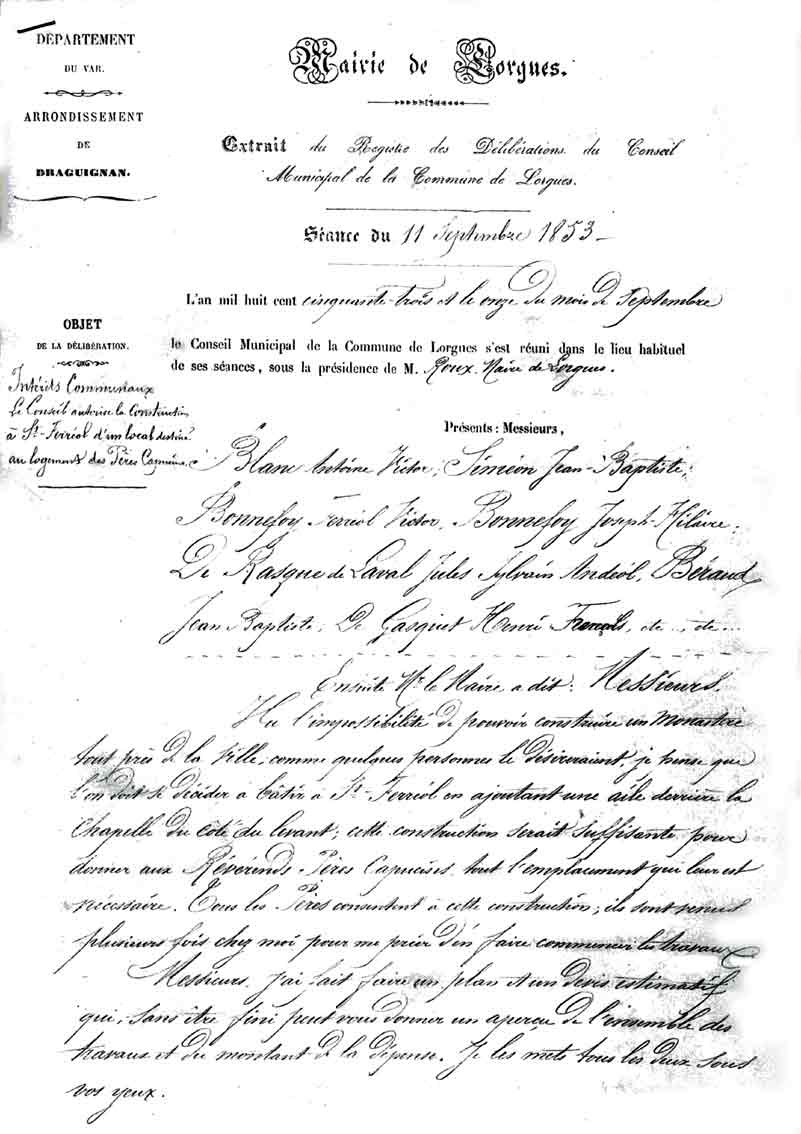 DÉPARTEMENT
DU VAR.
ARRONDISSEMENT
DE
DRAGUIGNAN.
Mairie de Lorgues.
Extrait du Registre des Délibérations du Conseil
Municipal de la Commune de Lorgues.
Séance du 11 Septembre 1853
L'an mil huit cent cinquante-trois et le onze du mois de Septembre
le Conseil Municipal de la Commune de Lorgues s'est réuni dans le lieu habituel
de ses séances, sous la présidence de M. Roux Maire de Lorgues.
OBJET
DE LA DÉLIBÉRATION.
Intérêts Communaux
Le Conseil autorise la Construction
à St-Ferréol d'un local destiné
au logement des Pères Capucins
Présents : Messieurs,
Blanc Antoine Victor, Siméon Jean-Baptiste,
Bonnefoy Ferréol Victor, Bonnefoy Joseph-Hilaire,
De Rasque de Laval Jules Sylvain Andéol, Béraud
Jean Baptiste, De Gasquet Henri etc... etc...
Ensuite Mr le Maire a dit : Messieurs,
Vu l'impossibilité de pouvoir construire un monastère
tout près de la Ville, comme quelques personnes le désireraient, je pense que
l'on doit se décider à bâtir à St-Ferréol en ajoutant une aile derrière la
Chapelle du côté du levant ; cette construction serait suffisante pour
donner aux Révérends Pères Capucins tout l'emplacement qui leur est
nécessaire. Tous les Pères consentent à cette construction ; ils sont venus
plusieurs fois chez moi pour me prier d'en faire commencer les travaux
Messieurs, j'ai fait faire un plan et un devis estimatif
qui, sans être fini peut vous donner un aperçu de l'ensemble des
travaux et du montant de la dépense. Je les mets tous les deux sous
vos yeux.